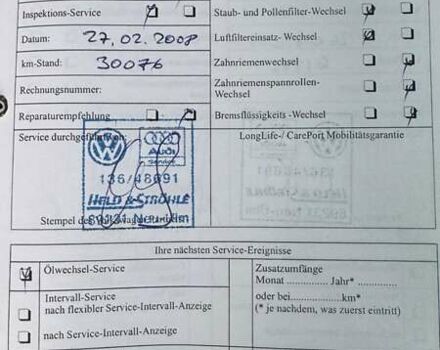 Inspektions-Service
Staub- und Pollenfilter-Wechsel
Datum: 27.02.2008
Luftfiltereinsatz- Wechsel
km-Stand: 30076
Zahnriemenwechsel
Rechnungsnummer:
Zahnriemenspannrollen-
Wechsel
Reparaturempfehlung
Bremsflüssigkeits -Wechsel
Service durchgeführt
LongLife-/ CarePort Mobilitätsgarantie
Audi
Service
136/48691
HELD & STRÖHLE
89231 Neu-Ulm
Stempel des
Ihre nächsten Service-Ereignisse
Ölwechsel-Service
Zusatzumfänge
Monat .............. Jahr*...
Intervall-Service
nach flexibler Service-Intervall-Anzeige
oder bei...................km*
(* je nachdem, was zuerst eintritt)
nach Service-Intervall-Anzeige